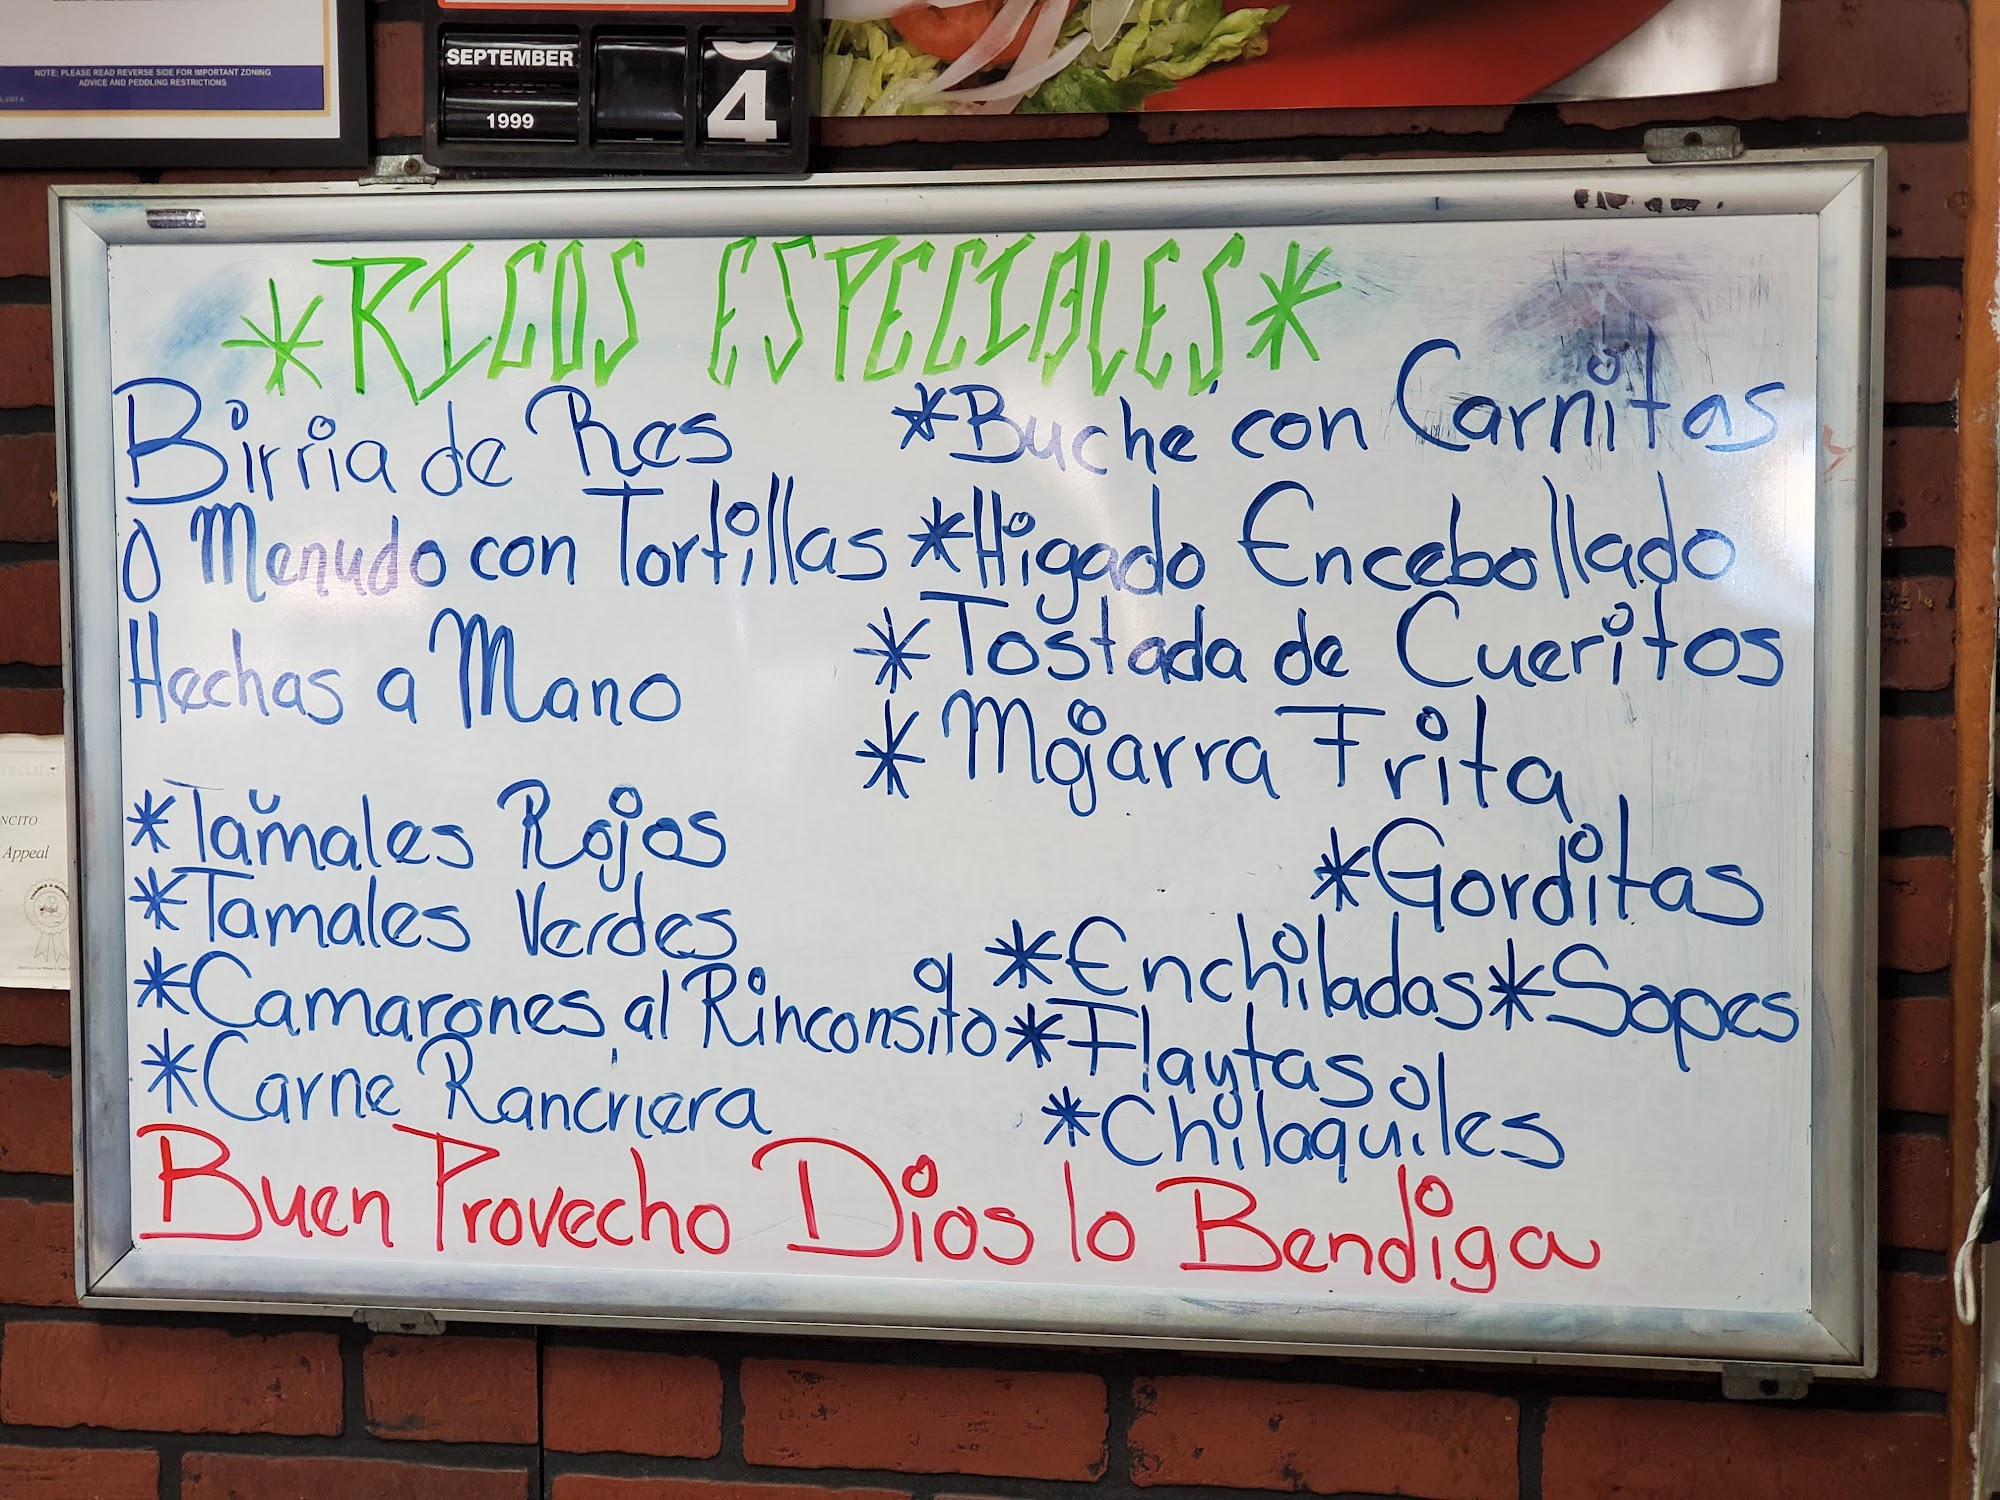 NOTE: PLEASE READ REVERSE SIDE FOR IMPORTANT ZONING
ADVICE AND PEDDLING RESTRICTIONS
SEPTEMBER
1999
4
*RICOS ESPECIALES*
Birria de Res
O Menudo con Tortillas
Hechas a Mano
*Tamales Rojos
*Tamales Verdes
*Camarones al Rinconsito
*Carne Ranchera
*Buche con Carnitas
*Higado Encebollado
*Tostada de Cueritos
*Mojarra Frita
*Gorditas
*Enchiladas *Sopes
*Flaytas
*Chilaquiles
Buen Provecho Dios lo Bendiga
NCITO
Appeal